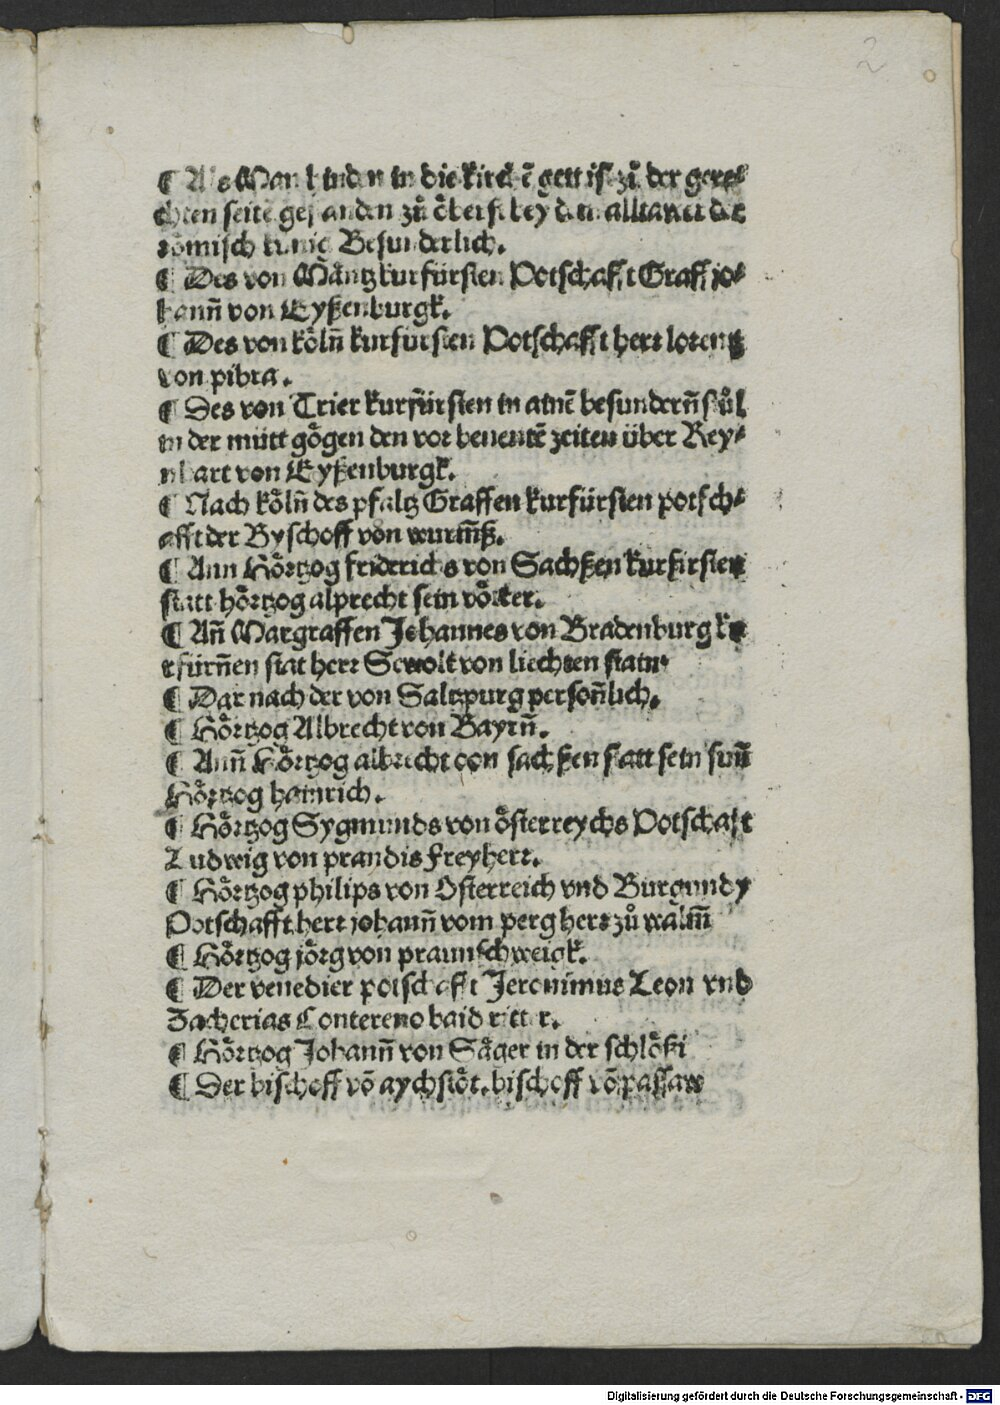 2
¶ Als Man hinden in die kirchē gett ist zů der gere⸗
chten seite gestanden zů öberst bey dem alltawer der
römisch kunig Besunderlich.
¶ Des von Mäntz kurfürsten Potschafft Graff jo⸗
hann̄ von Eyßenburgk.
¶ Des von köln̄ kurfürsten Potschafft herr lorentz
von pibra.
¶ Des von Trier kurfürsten in ainē besundern̄ stůl
in der mitt gögen den vor benentē zeiten über Rey⸗
nhart von Eyßenburgk.
¶ Nach köln̄ des pfaltz Graffen kurfürsten potsch⸗
afft der Byschoff von wurm̄ß.
¶ Ann Hörtzog friderichs von Sachßen kurfürsten
statt hörtzog alprecht sein vötter.
¶ An̄ Margraffen Johannes von Bradenburg ku
rfürn̄en stat herr Sewolt von liechten stain.
¶ Dar nach der von Saltzpurg person̄lich.
¶ Hörtzog Albrecht von Bayrn̄.
¶ Ann̄ Hörtzog albrecht von sachßen statt sein sun̄
Hörtzog hainrich.
¶ Hörtzog Sygmunds von österreychs Potschafft
Ludwig von prandis freyherr.
¶ Hörtzog philips von Osterreich vnd Burgundy
Potschafft herr johann̄ vom perg herr zů walm̄
¶ Hörtzog jörg von praunschweigk.
¶ Der venedier potschafft Jeronimus Leon vnd
Zacherias Contereno baid ritter.
¶ Hörtzog Johann̄ von Säger in der schlößi
¶ Der bischoff vō aychstöt. bischoff vō passaw
Digitalisierung gefördert durch die Deutsche Forschungsgemeinschaft - DFG